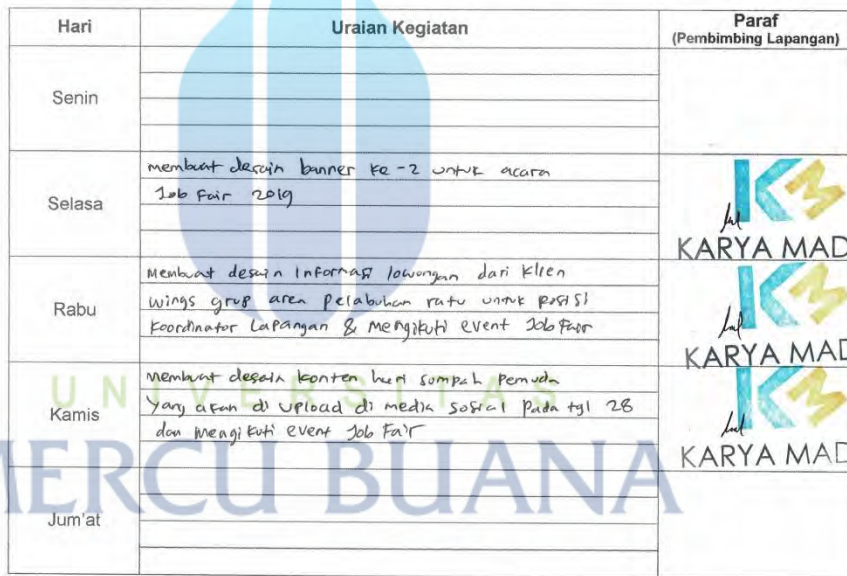 Hari Uraian Kegiatan Paraf
(Pembimbing Lapangan)
Senin
Selasa
membuat desain banner ke-2 untuk acara
Job Fair 2019
KARYA MAD
Rabu
Membuat desain Informasi lowongan dari klien
wings grup area Pelabuhan ratu untuk posisi
koordinator Lapangan & mengikuti event Job Fair
KARYA MAD
Kamis
Membuat desain konten hari sumpah Pemuda
Yang akan di upload di media sosial Pada tgl 28
dan mengikuti event Job Fair
KARYA MAD
Jum'at
UNIVERSITAS
MERCU BUANA